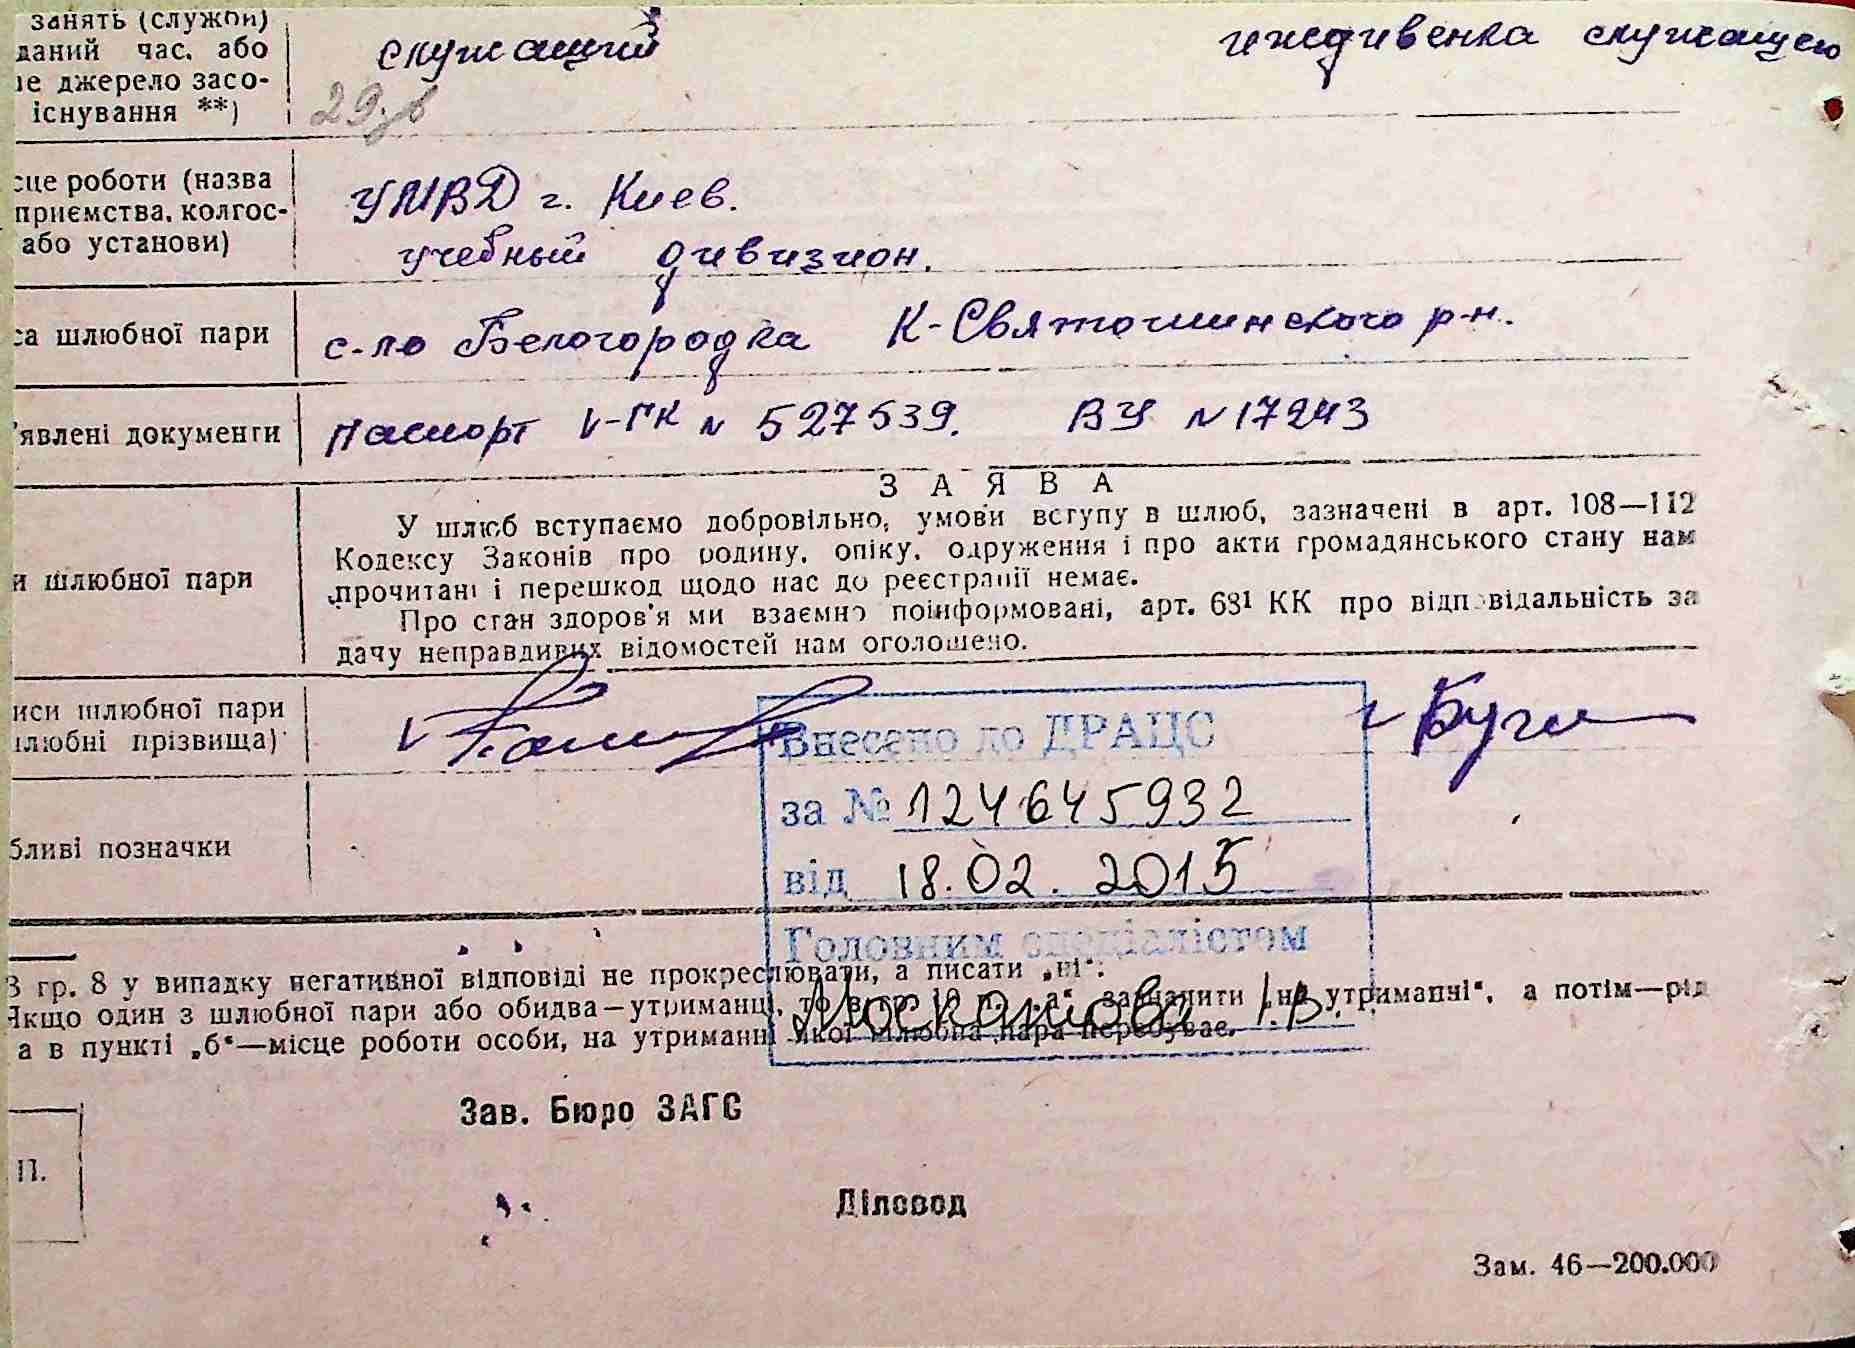 занять (служби)
даний час, або
не джерело засо-
існування **)
служащий
иждивенка служащего
29
сце роботи (назва
приємства, колгос-
або установи)
УМВД г. Киев.
учебный дивизион.
са шлюбної пари
с-ло Белогородка К-Святошинского р-н.
'явлені документи
Паспорт V-ГК N 527539. ВУ N 17243
ЗАЯВА
и шлюбної пари
У шлюб вступаємо добровільно, умови вступу в шлюб, зазначені в арт. 108—112
Кодексу Законів про родину, опіку, одруження і про акти громадянського стану нам
прочитані і перешкод щодо нас до реєстрації немає.
Про стан здоров'я ми взаємно поінформовані, арт. 68¹ КК про відповідальність за
дачу неправдивих відомостей нам оголошено.
иси шлюбної пари
шлюбні прізвища)
бливі позначки
Внесено до ДРАЦС
за № 124645932
від 18.02.2015
Головним спеціалістом
І.В.
В гр. 8 у випадку негативної відповіді не прокреслювати, а писати „ні“.
Якщо один з шлюбної пари або обидва—утриманці, то в гр. 10 п. „а“ зазначити „на утриманні“, а потім—рід
а в пункті „б“—місце роботи особи, на утриманні якої шлюбна пара перебуває.
Зав. Бюро ЗАГС
П.
Діловод
Зам. 46—200.000